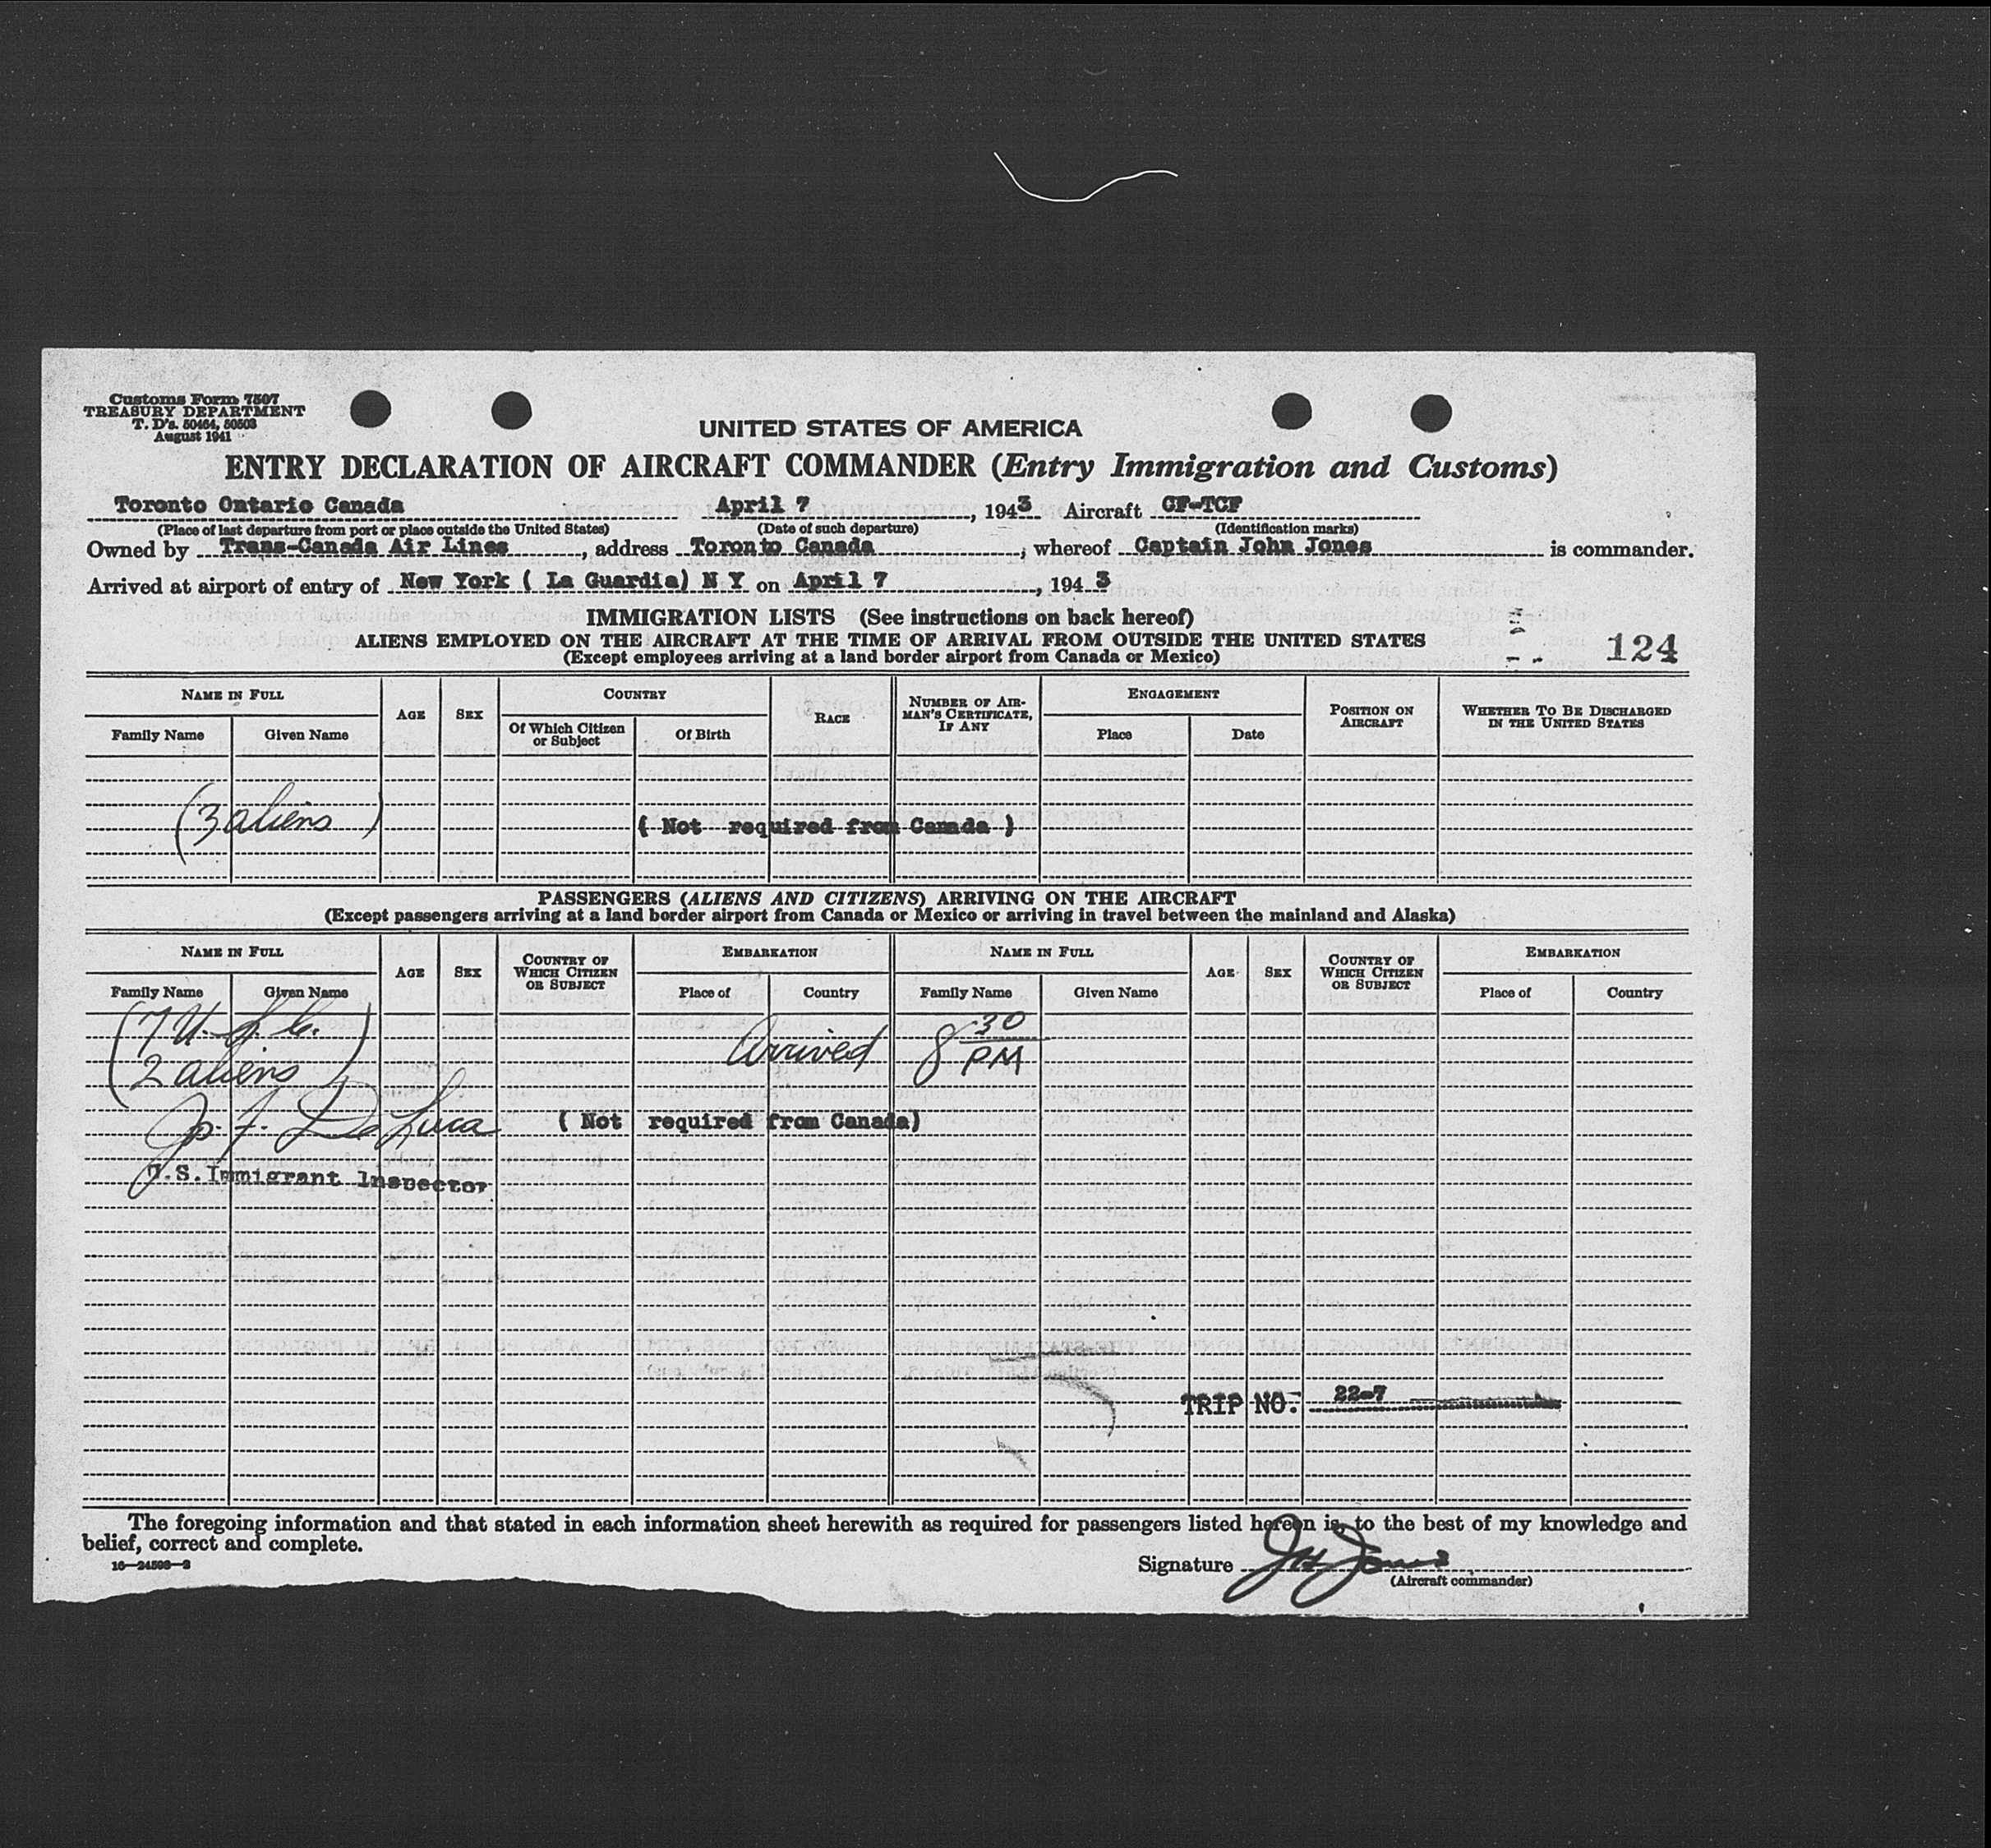 Customs Form 7507
TREASURY DEPARTMENT
T. D's. 50464, 50503
August 1941
UNITED STATES OF AMERICA
ENTRY DECLARATION OF AIRCRAFT COMMANDER (Entry Immigration and Customs)
Toronto Ontario Canada April 7, 1943 Aircraft CF-TCF
(Place of last departure from port or place outside the United States) (Date of such departure) (Identification marks)
Owned by Trans-Canada Air Lines, address Toronto Canada, whereof Captain John Jones is commander.
Arrived at airport of entry of New York ( La Guardia) N Y on April 7, 1943
IMMIGRATION LISTS (See instructions on back hereof)
ALIENS EMPLOYED ON THE AIRCRAFT AT THE TIME OF ARRIVAL FROM OUTSIDE THE UNITED STATES
(Except employees arriving at a land border airport from Canada or Mexico)
124
NAME IN FULL AGE SEX COUNTRY RACE NUMBER OF AIRMAN'S CERTIFICATE, IF ANY ENGAGEMENT POSITION ON AIRCRAFT WHETHER TO BE DISCHARGED IN THE UNITED STATES
Family Name Given Name Of Which Citizen or Subject Of Birth Place Date
(3 aliens) ( Not required from Canada )
PASSENGERS (ALIENS AND CITIZENS) ARRIVING ON THE AIRCRAFT
(Except passengers arriving at a land border airport from Canada or Mexico or arriving in travel between the mainland and Alaska)
NAME IN FULL AGE SEX COUNTRY OF WHICH CITIZEN OR SUBJECT EMBARKATION NAME IN FULL AGE SEX COUNTRY OF WHICH CITIZEN OR SUBJECT EMBARKATION
Family Name Given Name Place of Country Family Name Given Name Place of Country
(7 U.S.C.
2 aliens) Arrived 8 30 PM
Jo. F. DaLuca ( Not required from Canada)
U.S. Immigrant Inspector
TRIP NO. 22-7
The foregoing information and that stated in each information sheet herewith as required for passengers listed hereon is, to the best of my knowledge and
belief, correct and complete.
16—24598—2
Signature JH Jones
(Aircraft commander)